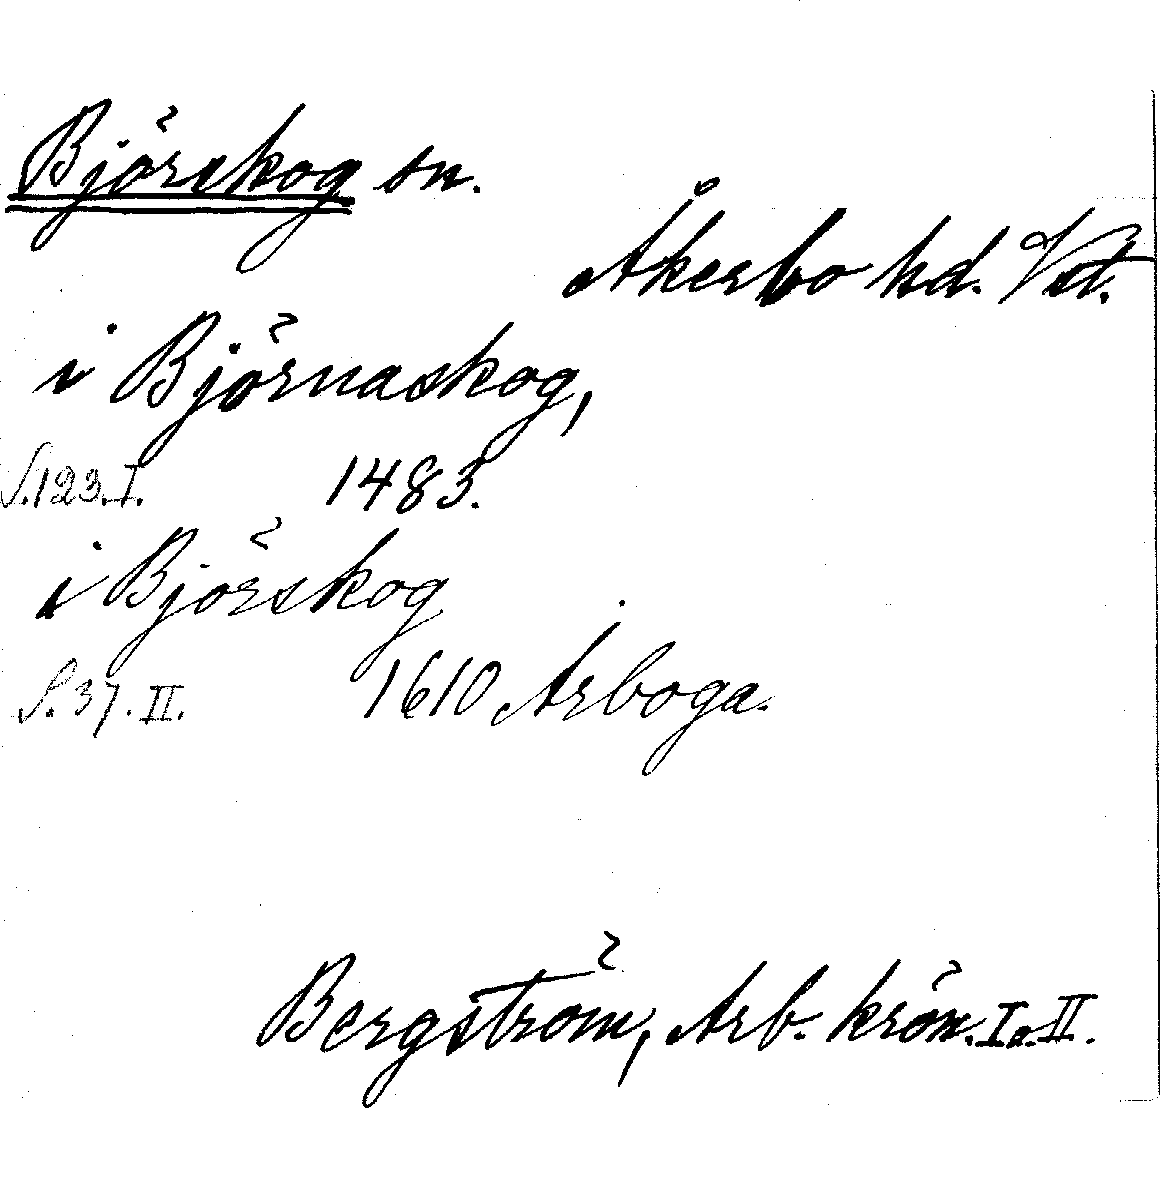 Björskog sn.
Åkerbo hd. Vstl.
i Björnaskog,
S. 123. I. 1483.
i Björskog
S. 37. II. 1610 Arboga.
Bergström, Arb. krön. I o. II.